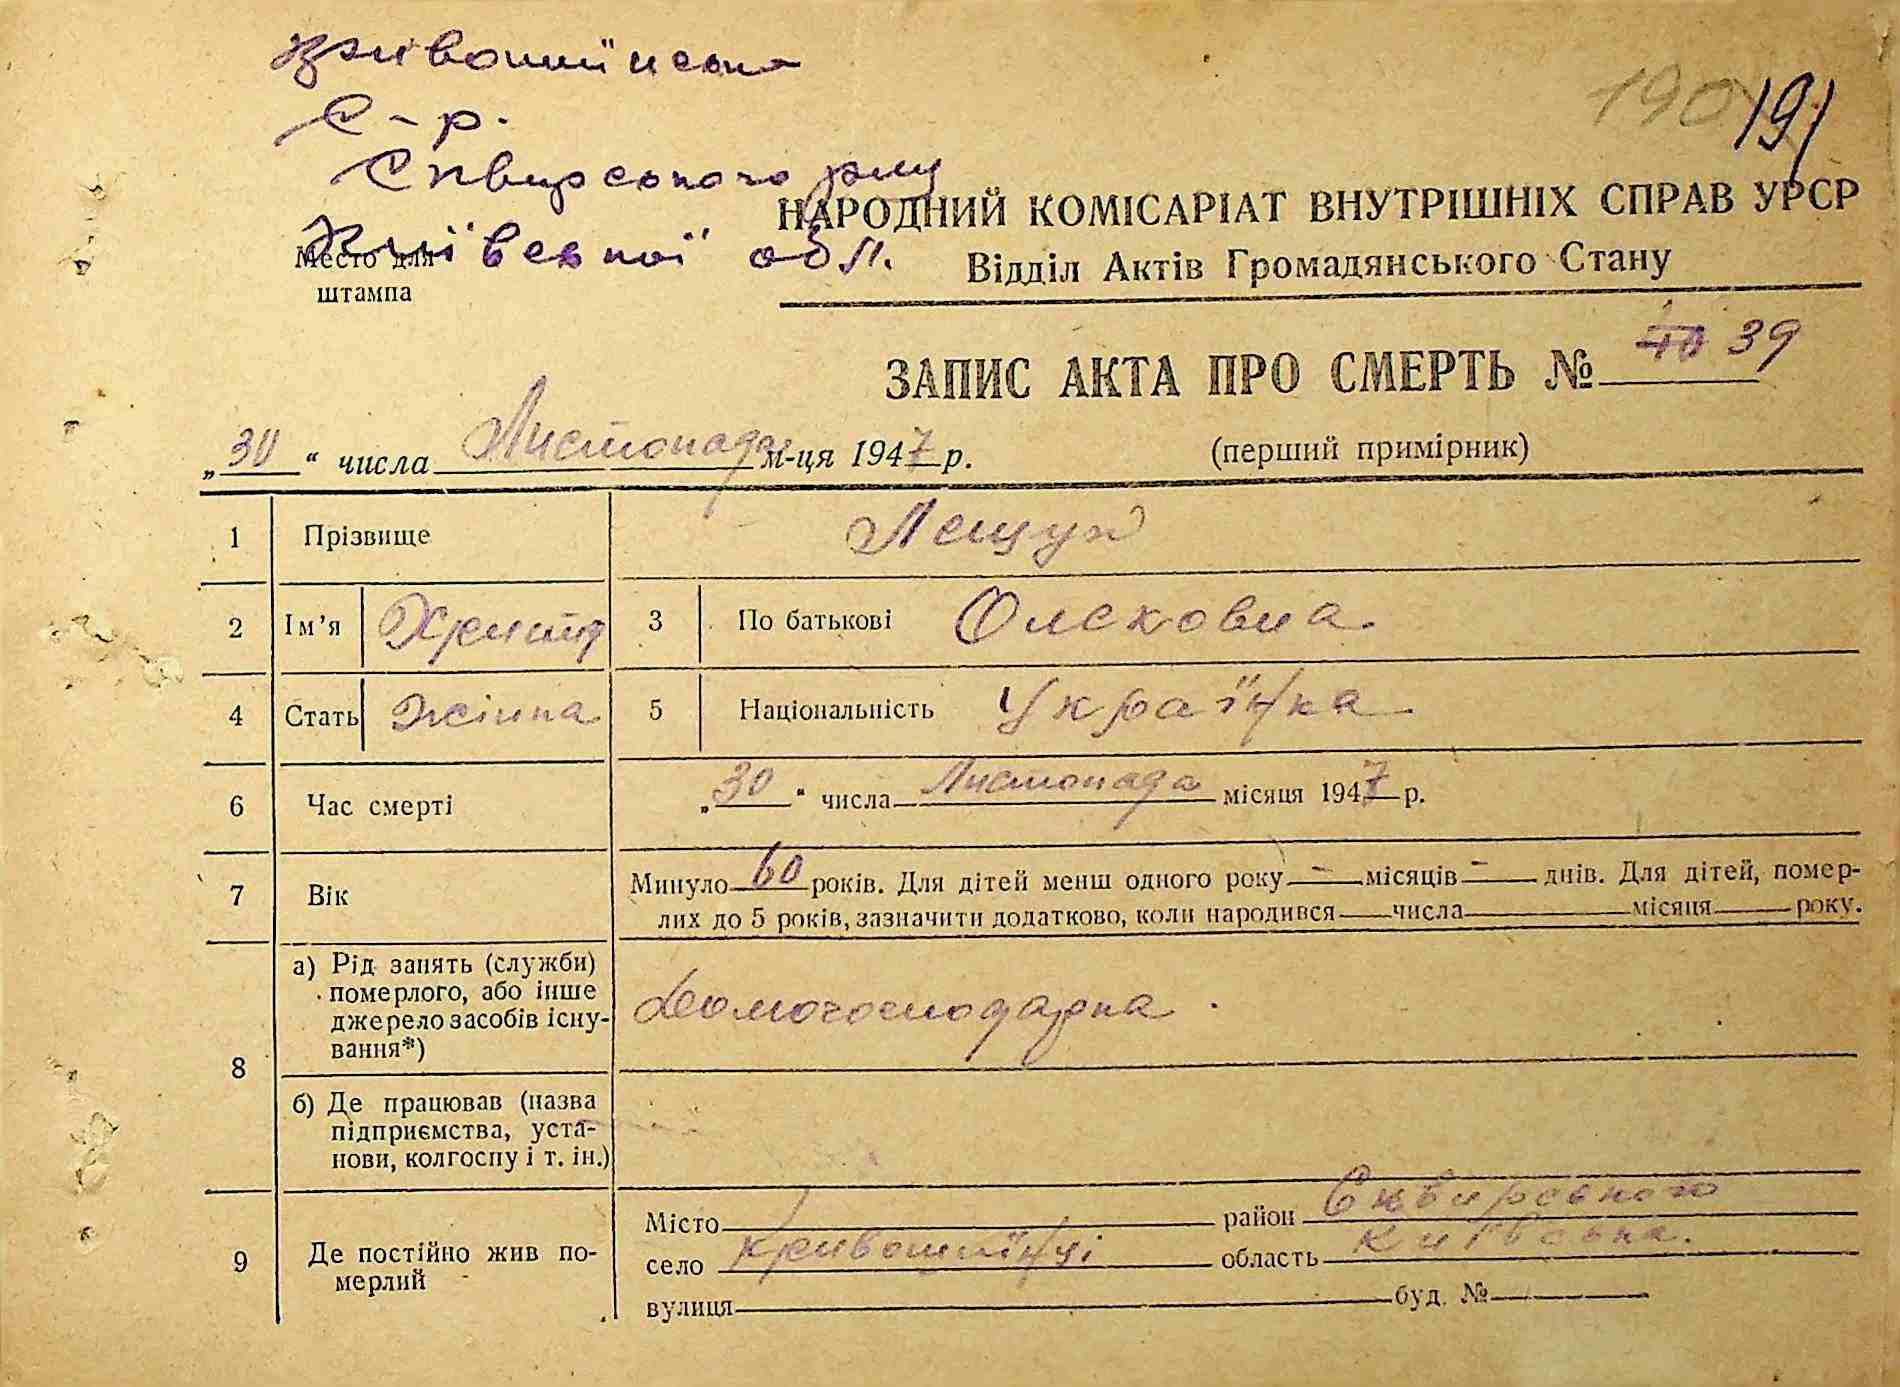 Кривошиїнська
С-р.
190 191
Сквирського р-ну
НАРОДНИЙ КОМІСАРІАТ ВНУТРІШНІХ СПРАВ УРСР
Київської обл.
Место для
штампа
Відділ Актів Громадянського Стану
ЗАПИС АКТА ПРО СМЕРТЬ № 40 39
„30“ числа Листопада м-ця 1947 р.
(перший примірник)
1 Прізвище Лещук
2 Ім’я Христя 3 По батькові Олексовна
4 Стать жінка 5 Національність Українка
6 Час смерті „30“ числа Листопада місяця 1947 р.
7 Вік Минуло 60 років. Для дітей менш одного року - місяців - днів. Для дітей, помер-
лих до 5 років, зазначити додатково, коли народився числа місяця року.
8 а) Рід занять (служби)
померлого, або інше
джерело засобів існу-
вання*)
Домогосподарка
б) Де працював (назва
підприємства, уста-
нови, колгоспу і т. ін.)
9 Де постійно жив по-
мерлий
Місто район Сквирського
село Кривошиїнці область Київська.
вулиця буд. №